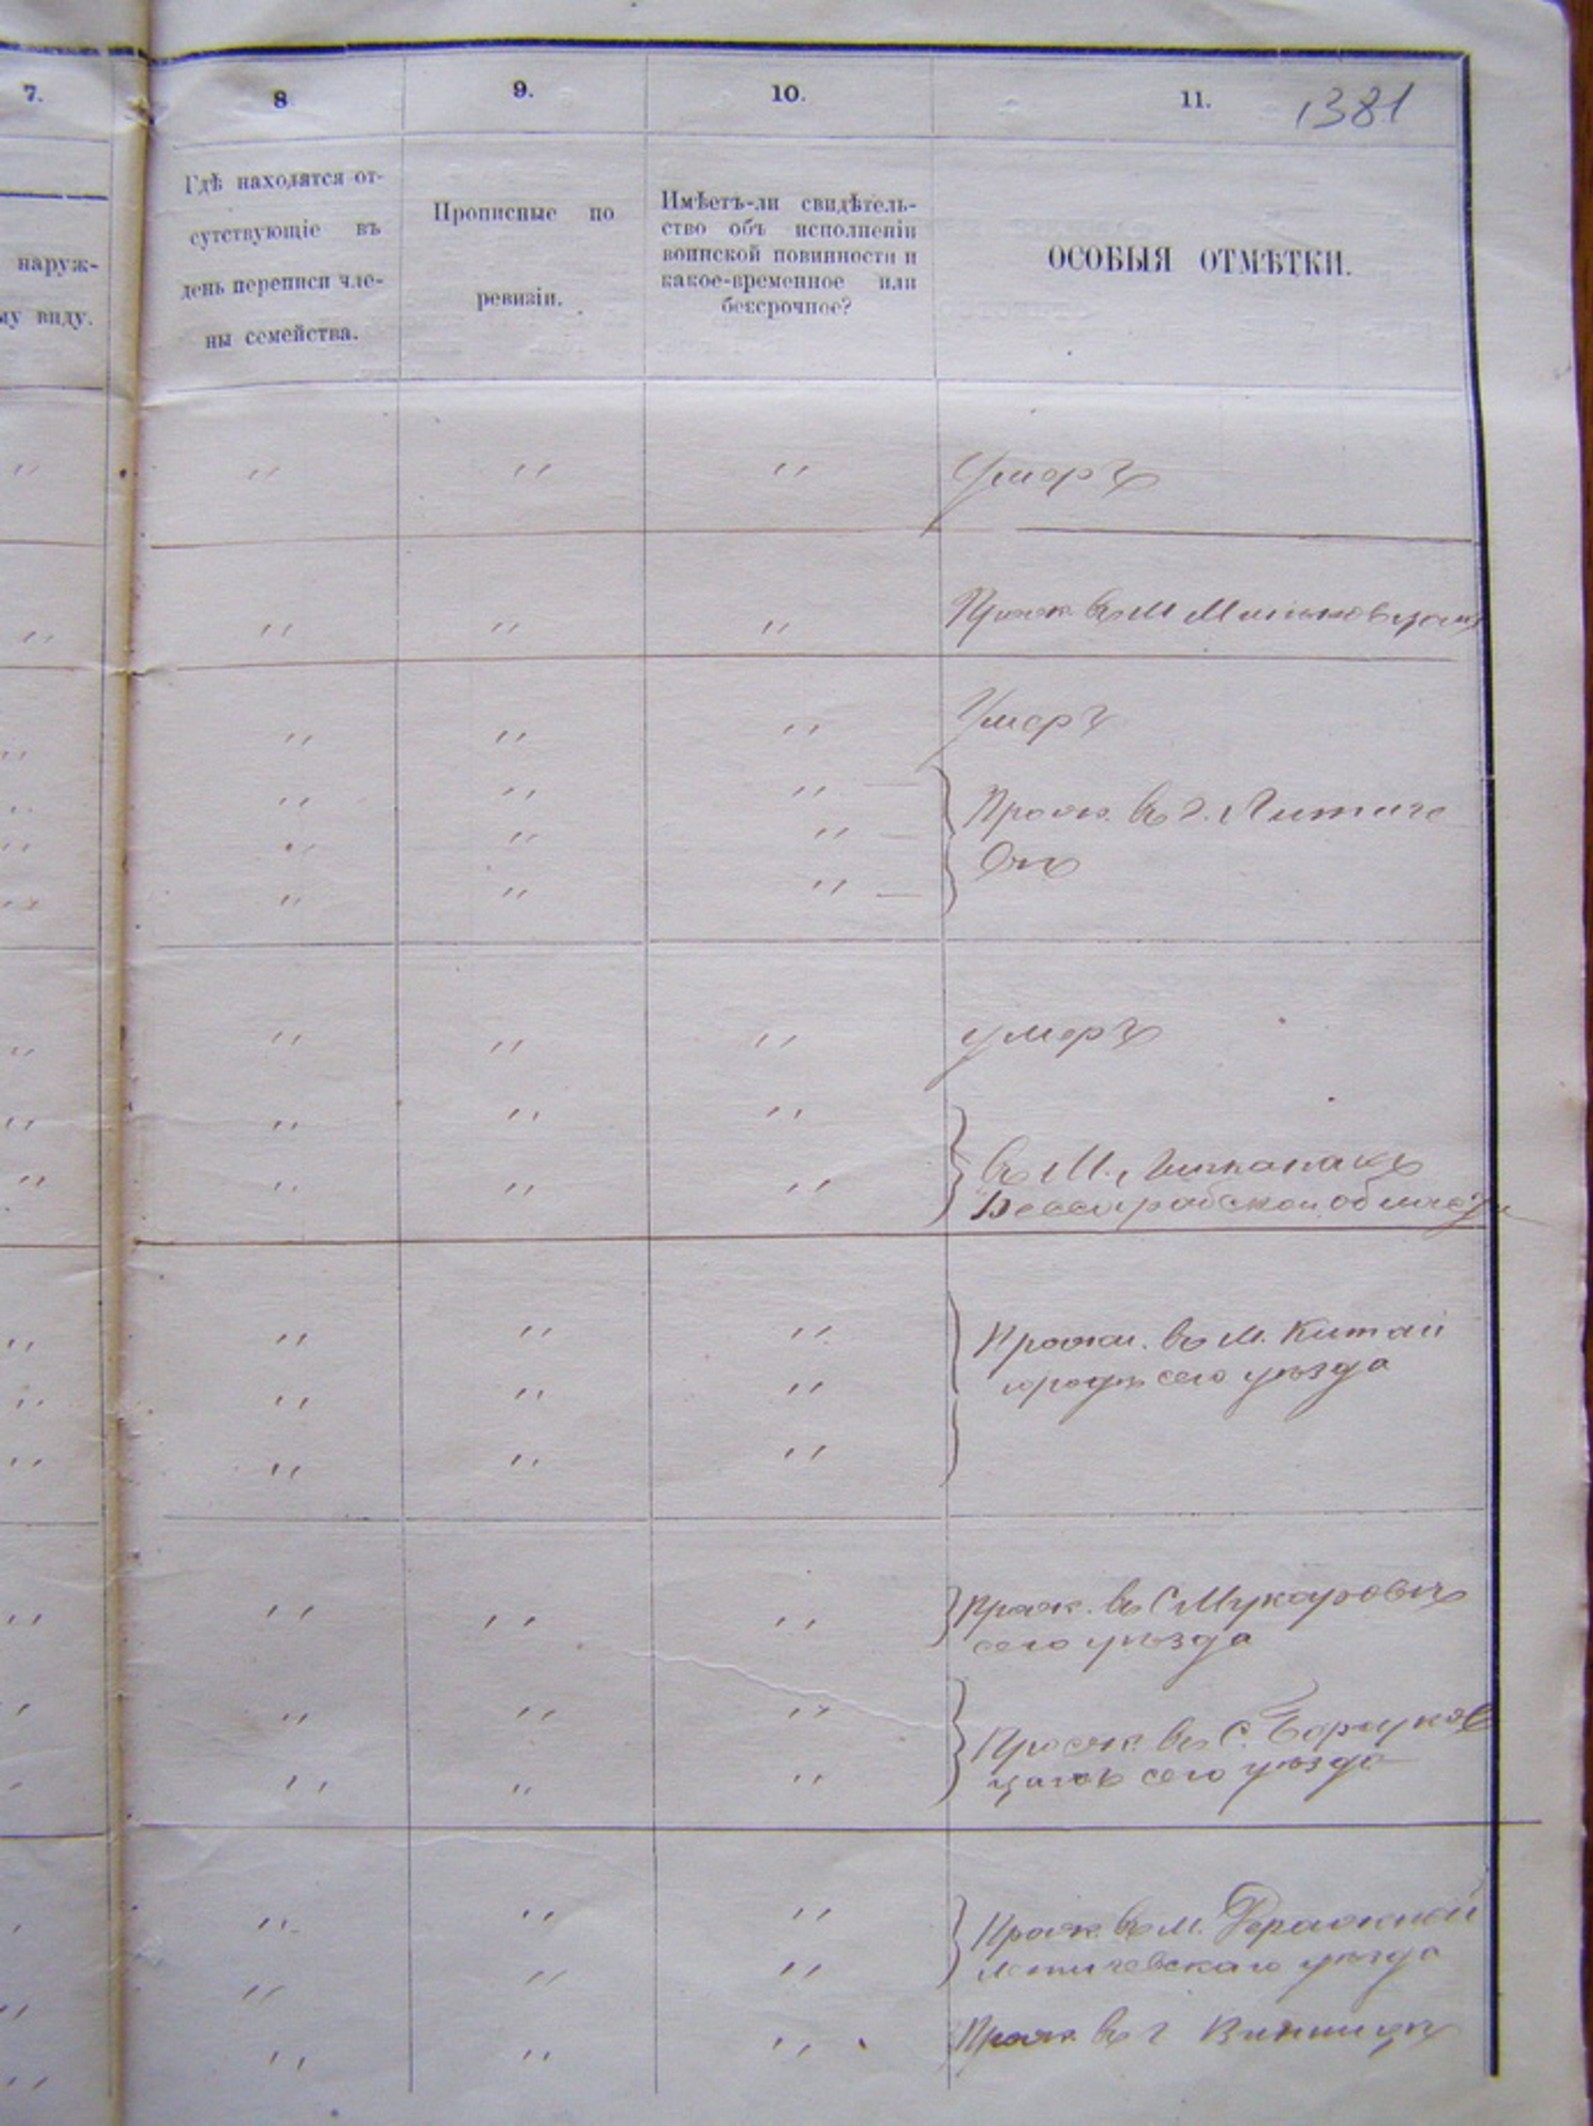 7.
8
9.
10.
11.
1381
наруж-
му виду.
Гдѣ находятся от-
сутствующіе въ
день переписи чле-
ны семейства.
Прописные по
ревизіи.
Имѣетъ-ли свидѣтель-
ство объ исполненіи
воинской повинности и
какое-временное или
безсрочное?
ОСОБЫЯ ОТМѢТКИ.
Умеръ
Прож. въ М Миньковцахъ
Умеръ
Прож. въ г. Летиче
умеръ
въ М. Липканахъ
Бессарабской области
Прожи. въ м. Китай
городѣ сего уѣзда
Прож. въ С Мукаровъ
сего уѣзда
Прож. въ С.
цахъ сего уѣзда
Прож. въ м. Деражной
летичевскаго уѣзда
Прож. въ г Винницѣ